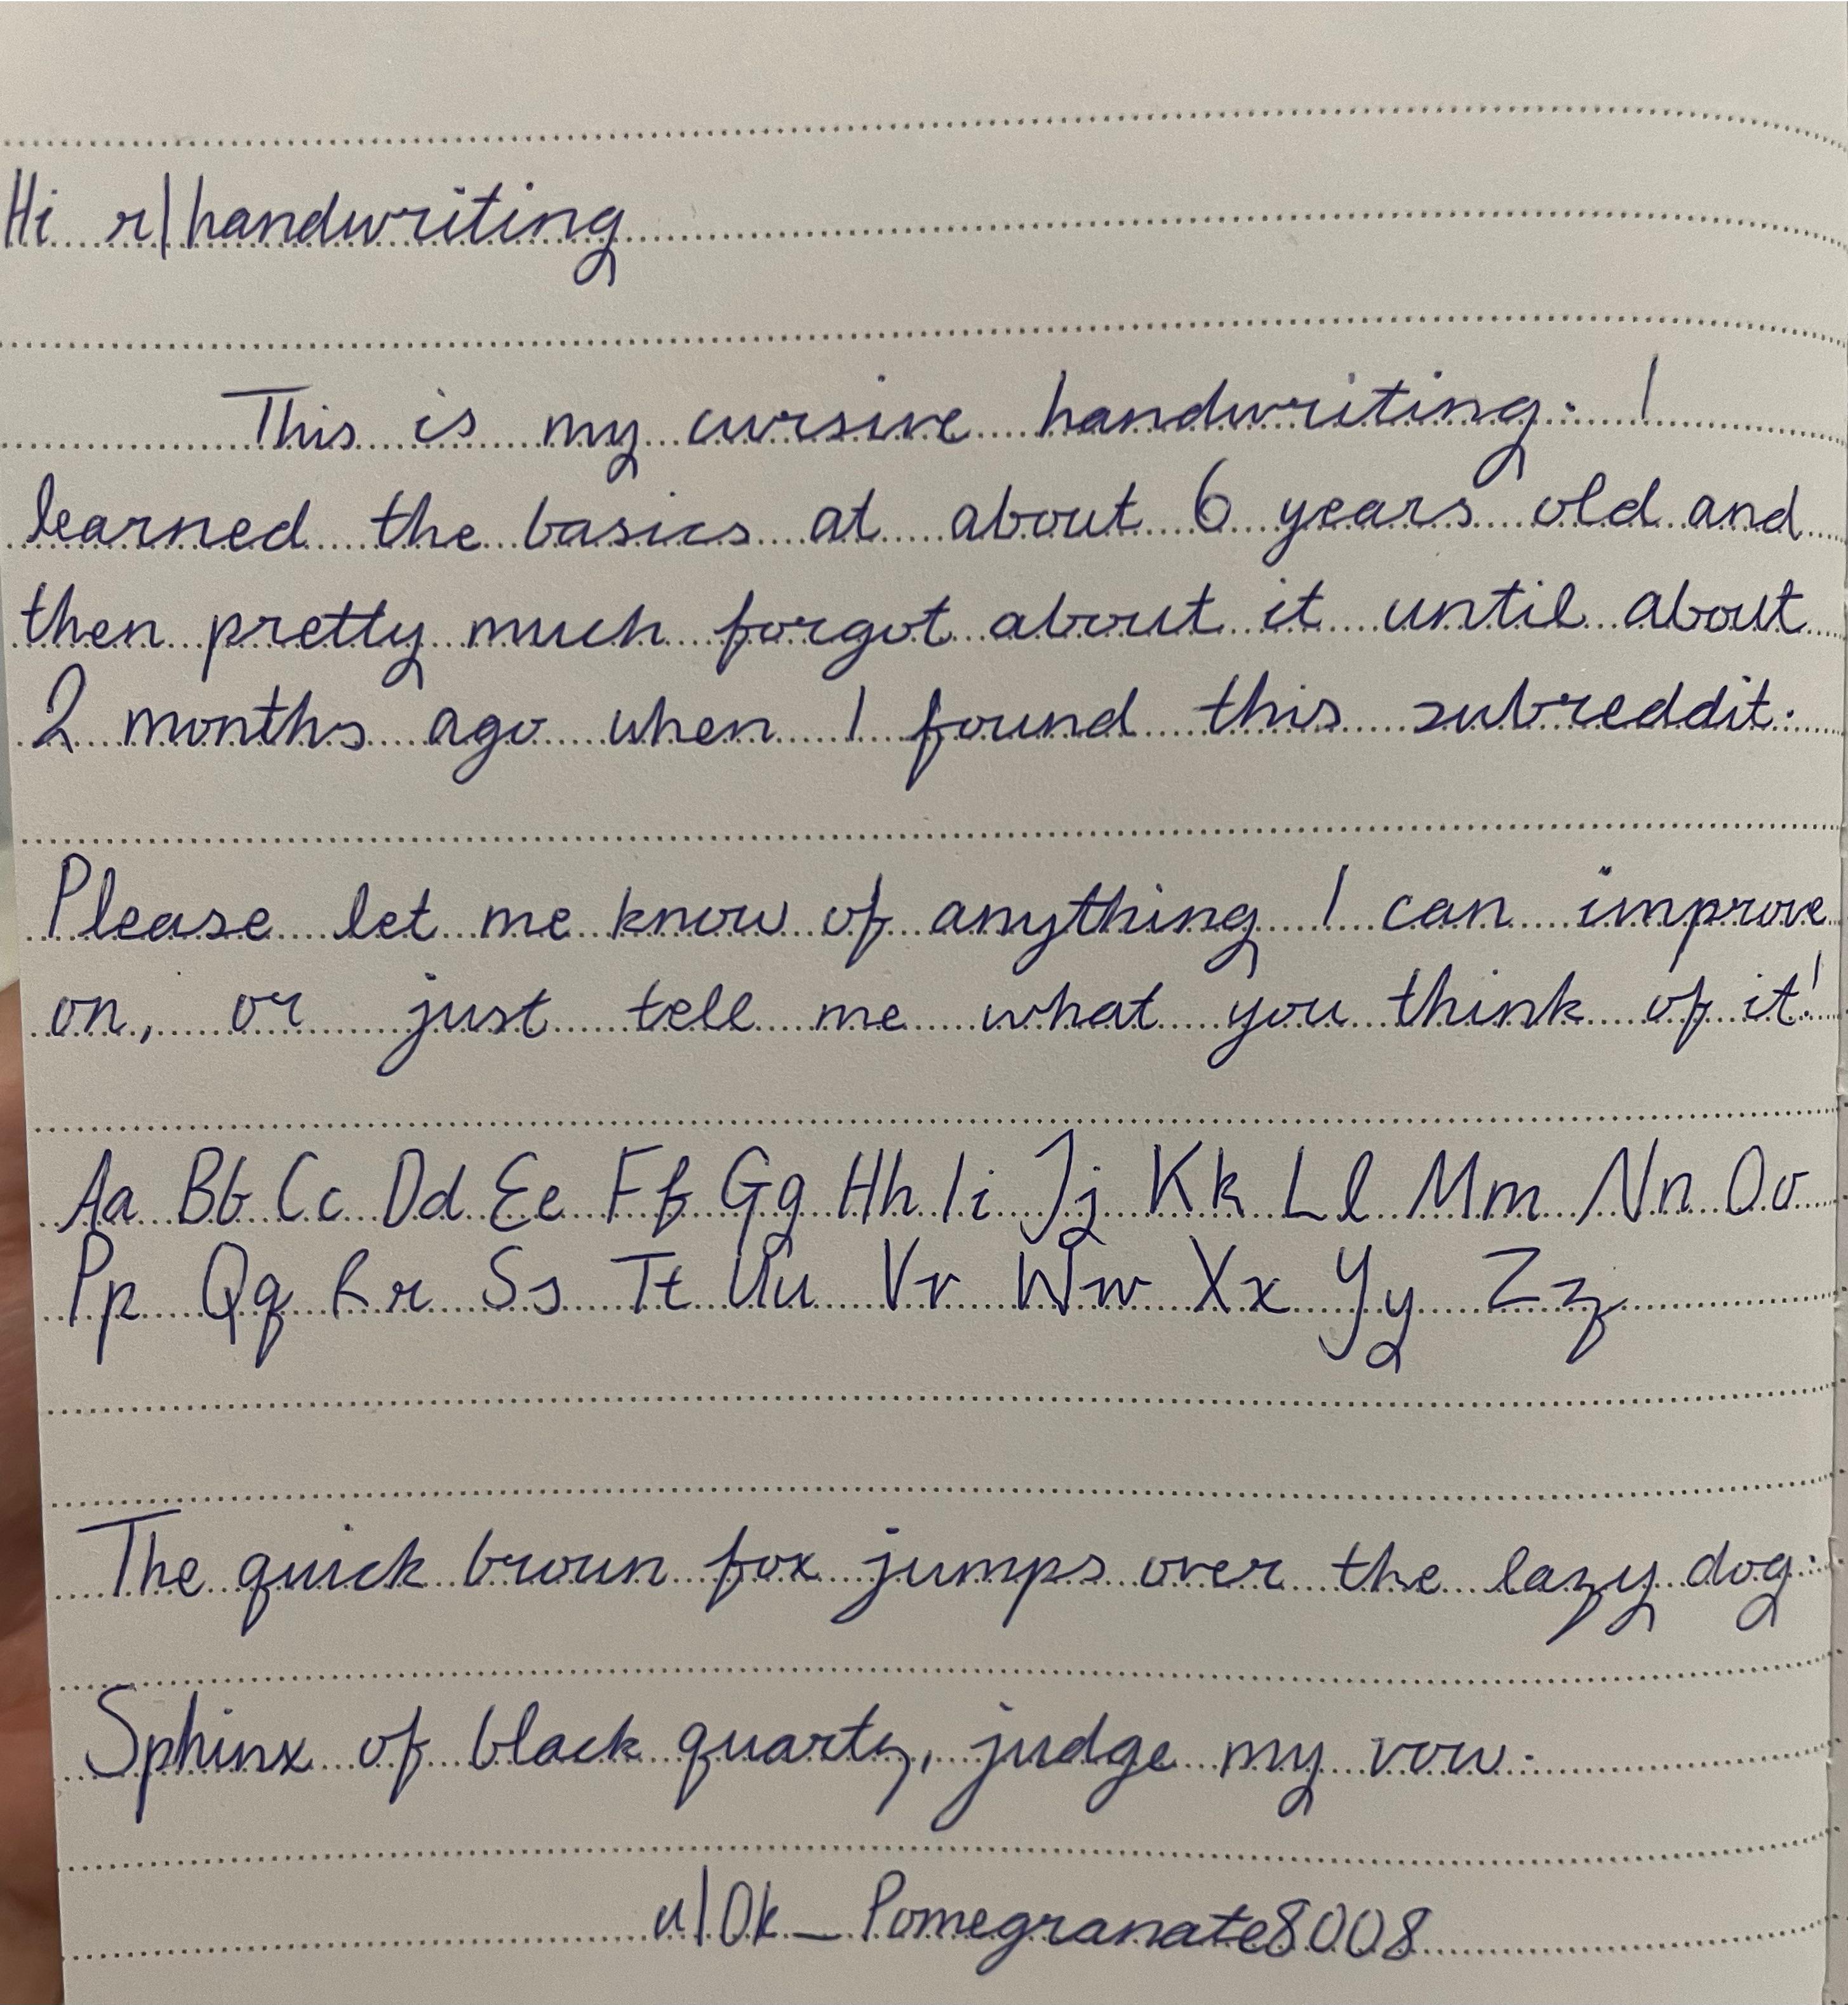 Hi r/handwriting
This is my cursive handwriting. I
learned the basics at about 6 years old and
then pretty much forgot about it until about
2 months ago when I found this subreddit.
Please let me know of anything I can improve
on, or just tell me what you think of it!
Aa Bb Cc Dd Ee Ff Gg Hh Ii Jj Kk Ll Mm Nn Oo
Pp Qq Rr Ss Tt Uu Vv Ww Xx Yy Zz
The quick brown fox jumps over the lazy dog.
Sphinx of black quartz, judge my vow.
u/Ok_Pomegranate8008